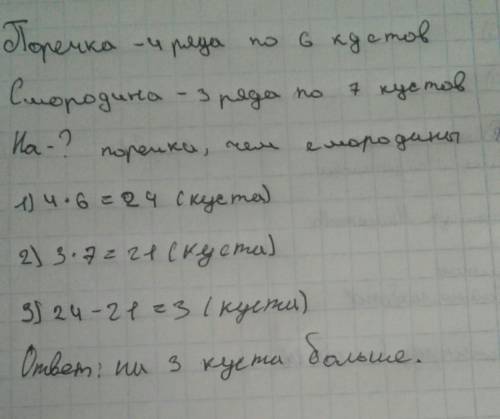 Поречка – 4 ряда по 6 кустов
Смородина – 3 ряда по 7 кустов
На - ? поречки, чем смородины
1) 4 · 6 = 24 (куста)
2) 3 · 7 = 21 (куста)
3) 24 – 21 = 3 (куста)
Ответ: на 3 куста больше.